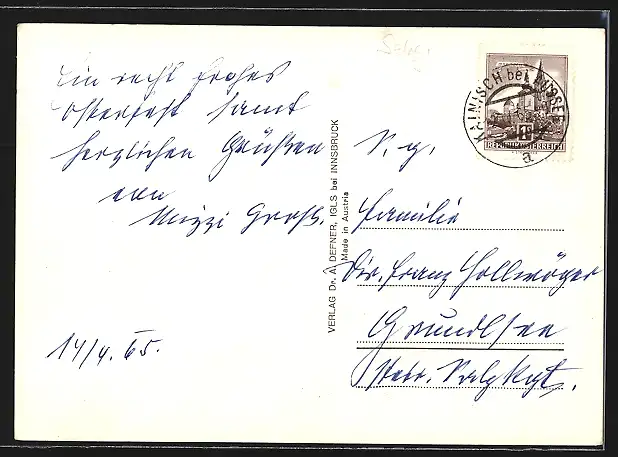 Ein recht frohes
Osterfest samt
herzlichen Grüßen
von
Muizzi Groß.
14/4. 65.
VERLAG Dr. A. DEFNER, IGLS bei INNSBRUCK
Made in Austria
KAINISCH bei AUSSEE
a
REPUBLIK ÖSTERREICH
S. g.
Familie
Dir. Franz Hollwöger
Grundlsee
Steir. Salzkgt.